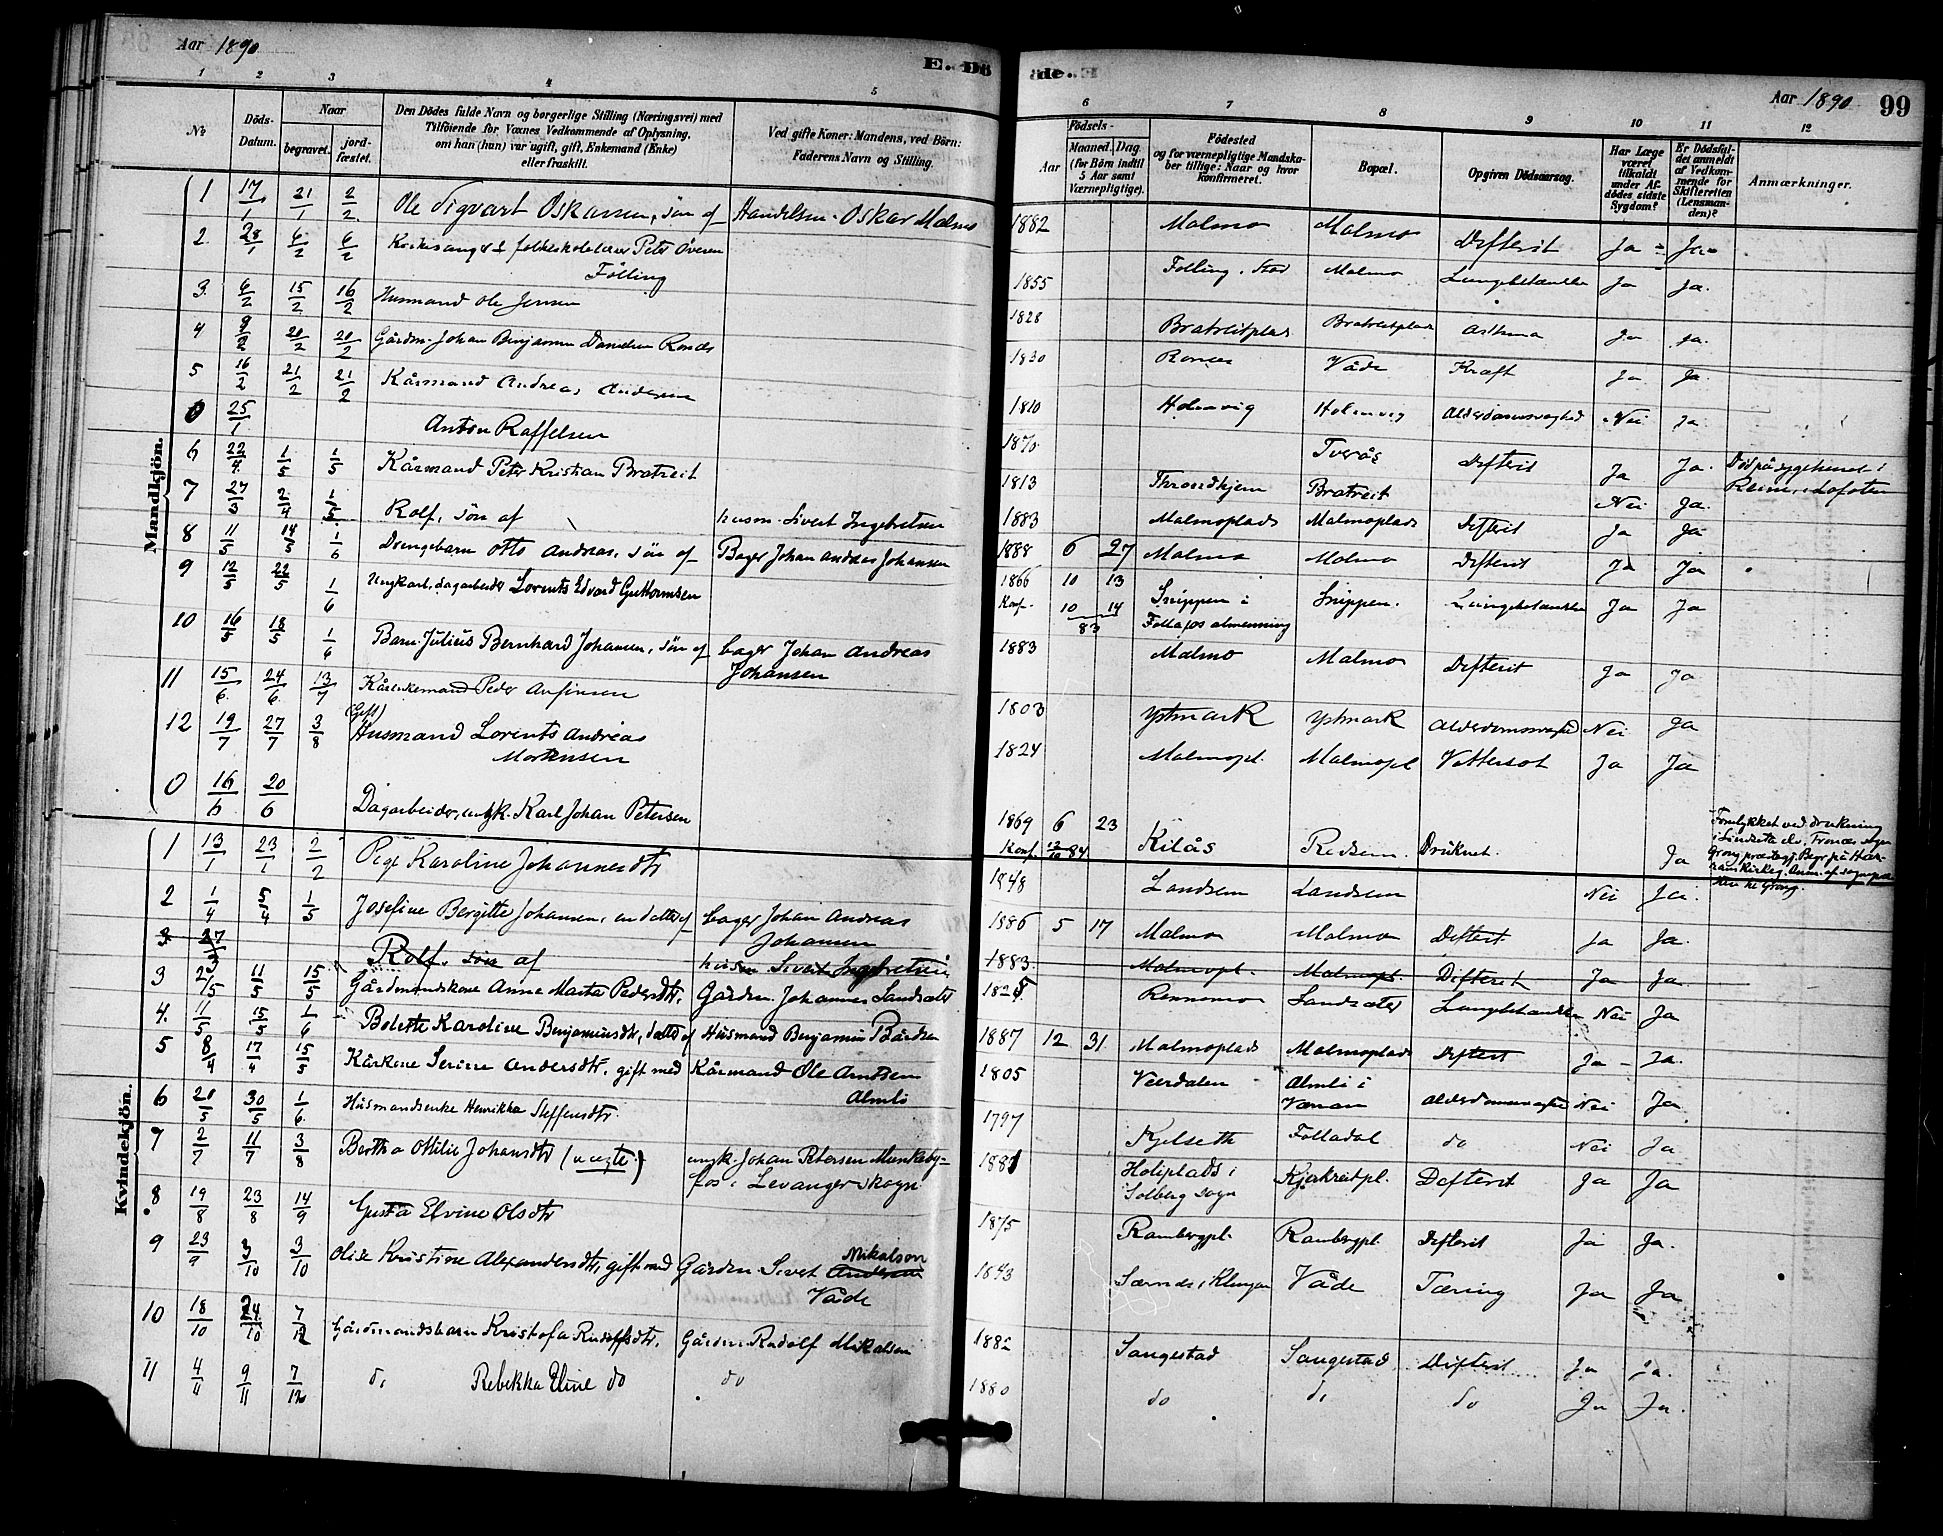 Aar 1890
E. Dö
de. E
Aar 1890
99
1 2 3 4 5
6 7 8 9 10 11 12
No
Döds-Datum.
Naar
begravet.
jordfæstet.
Den Dödes fulde Navn og borgerlige Stilling (Næringsvei) med
Tilföiende for Voxnes Vedkommende af Oplysning,
om han (hun) var ugift, gift, Enkemand (Enke)
eller fraskilt.
Ved gifte Koner: Mandens, ved Börn:
Faderens Navn og Stilling.
Födsels-
Aar
Maaned. Dag
(for Börn indtil 5 Aar samt Værnepligtige).
Födested
og for værnepligtige Mandskaber tillige: Naar og hvor konfirmeret.
Bopæl.
Opgiven Dödsaarsag.
Har Læge været tilkaldt under Afdödes sidste Sygdom?
Er Dödsfaldet anmeldt af Vedkommende for Skifteretten (Lensmanden)?
Anmærkninger.
Mandkjön.
1 17/1 21/1 2/2 Ole Sigvart Oskarsen, sön af Handelsm. Oskar Malmo 1882 Malmo Malmo Difterit Ja Ja
2. 28/1 6/2 6/2 Kirkesanger & folkeskolelærer Peter Överen
Fölling 1855 Følling, Stod Malmo Lungebetændelse Ja Ja.
3. 6/2 15/2 16/2 Husmand Ole Jensen 1828 Bratreitplads Bratreitplads Asthma Ja Ja.
4 9/2 20/2 20/2 Gårdm. Johan Benjamin Danielsen 1830 Våde Kræft Ja Ja.
5 16/2 21/2 21/2 Kårmand Andreas Andersen 1810 Holmvig Holmvig Alderdomssvaghed Nei Ja
0 25/1 Anton Raffelsen 1870 Tverås Difterit Ja Ja. Död på sygehuset i
Reine i Lofoten
6 22/4 1/5 1/5 Kårmand Peter Kristian Bratreit 1813 Throndhjem Bratreit Nei Ja.
7 27/3 2/4 1/5 Rolf, sön af husm. Sivert Ingebretsen 1883 Malmoplads Malmoplads Difterit Ja Ja
8 11/5 14/5 1/6 Drengebarn Otto Andreas, sön af Bager Johan Andreas Johansen 1888 6 27 Malmo Malmo Difterit Ja Ja
9 12/5 22/5 1/6 Ungkarl, dagarbeider Lorents Edvard Guttormsen 1866 10 13 Snippen i Snippen. Lungebetændelse Ja Ja
Konf. 10 14 83 Follafos almenning
10 16/5 18/5 1/6 Barn Julius Bernhard Johansen, sön af bager Johan Andreas
Johansen 1883 Malmo Malmo Difterit Ja Ja
11 15/6 24/6 13/7 Kårenkemand Peder Arfinsen 1803 Ystmark Ystmark Alderdomssvaghed Nei Ja
12 19/7 27/7 3/8 (Gift) Husmand Lorents Andreas
Mortensen 1824 Malmopl. Malmopl Vattersot Ja Ja
0 16/6 20/6 Dagarbeider, ungk. Karl Johan Petersen 1869 6 23 Kilås Redsem. Druknet. Ja
Konf. 12/10 84
Forulykket ved drukning
i Sindseta elv, Trones sogn
Grong præstegj. Begr. på Har-
ran Kirkeg. Anm. af sognepr-
sten til Grong.
Kvindekjön.
1 13/1 23/1 2/2 Pige Karoline Johannesdtr 1848 Landsem Landsem Nei Ja.
2 1/4 5/4 1/5 Josefine Bergitte Johansen, en datter af bager Johan Andreas
Johansen 1886 5 17 Malmo Malmo Difterit Ja Ja.
3 27/3 Rolf, sön af husm Sivert Ingebretsen 1883 Malmopl. Malmopl. Difterit Ja Ja.
3 2/5 11/5 15/5 Gårdmandskone Anne Marta Pedersdtr, Gårdm. Johannes Landsæter 1825 Rennemo Landsæter Lungebetændelse Nei Ja
4. 11/5 15/5 1/6 Bolette Karoline Benjaminsdtr, datter af Husmand Benjamin Bårdsen 1887 12 31 Malmoplads Malmoplads Difterit Ja Ja.
5 8/4 17/4 15/5 Kårkone Serine Andersdtr, gift med Kårmand Ole Arntsen
Almli 1805 Værdalen Almli i
Værran Alderdomssvaghed Nei Ja.
6 20/5 30/5 1/6 Husmandsenke Henrikka Steffensdtr. 1797 Kjelseth Folladal do Nei Ja
7 2/7 11/7 3/8 Bertha Ottilie Johansdtr (uægte) ungk. Johan Petersen Munkeby-
fos i Levanger skogn 1881 Holiplads i
Solberg sogn Kjækreitpl. Difterit Ja Ja
8 19/8 23/8 14/9 Gusta Elvine Olsdtr 1875 Rambergpl. Rambergpl. Difterit Ja Ja.
9 23/9 3/10 3/10 Olise Kristine Alexandersdtr, gift med Gårdm. Sivert Andersen Mikalson
Våde 1843 Særnde, Klingen Våde Tæring Ja Ja
10 18/10 24/10 7/12 Gårdmandsbarn Kristofa Rudolfsdtr, Gårdm. Rudolf Mikalsen 1882 Sangestad Sangestad Difterit Ja Ja.
11 4/11 9/11 7/12 do Rebekka Eline do do 1880 do do do Ja Ja.